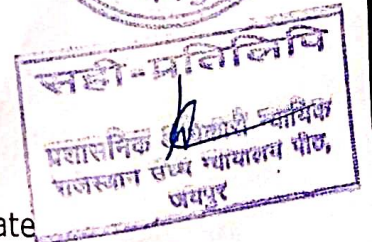 सही-प्रतिलिपि
प्रशासनिक अधिकारी न्यायिक
राजस्थान उच्च न्यायालय पीठ,
जयपुर
ate